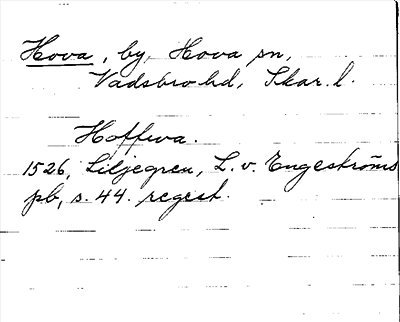 Hova, by, Hova sn,
Vadsbro hd, Skar. l.
Hoffwa.
1526, Liljegren, L. v. Engeströms
pb, s. 44. regest.